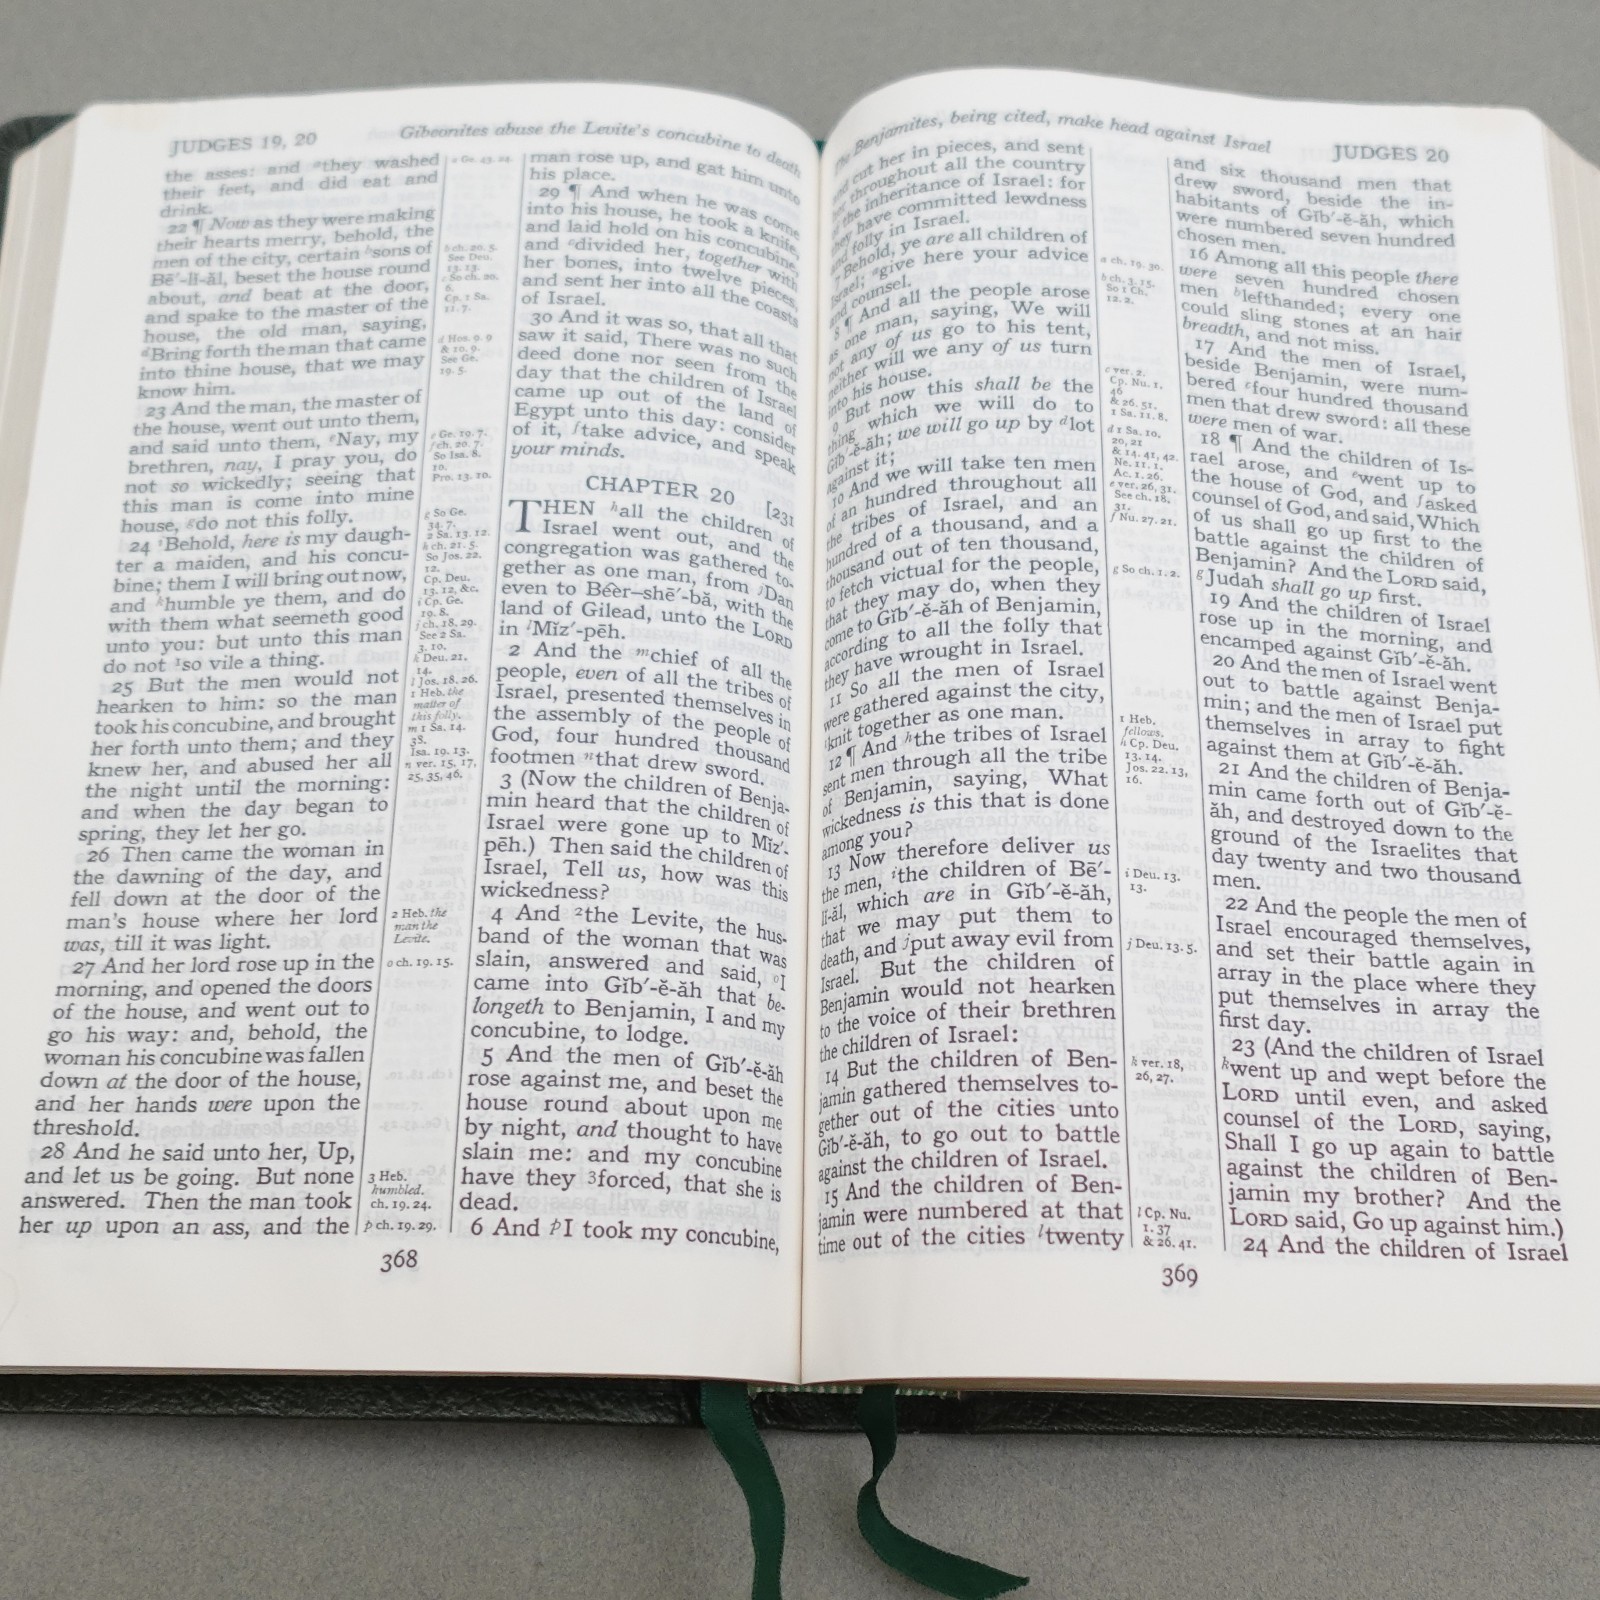 JUDGES 19, 20
Gibeonites abuse the Levite's concubine to death
the asses: and ᵃthey washed
their feet, and did eat and
drink.
22 ¶ Now as they were making
their hearts merry, behold, the
men of the city, certain ᵇsons of
Bē′-lĭ-ăl, beset the house round
about, and beat at the door,
and spake to the master of the
house, the old man, saying,
ᵈBring forth the man that came
into thine house, that we may
know him.
23 And the man, the master of
the house, went out unto them,
and said unto them, ᵉNay, my
brethren, nay, I pray you, do
not so wickedly; seeing that
this man is come into mine
house, ᵍdo not this folly.
24 ᶦBehold, here is my daugh-
ter a maiden, and his concu-
bine; them I will bring out now,
and ᵏhumble ye them, and do
with them what seemeth good
unto you: but unto this man
do not ¹so vile a thing.
25 But the men would not
hearken to him: so the man
took his concubine, and brought
her forth unto them; and they
knew her, and abused her all
the night until the morning:
and when the day began to
spring, they let her go.
26 Then came the woman in
the dawning of the day, and
fell down at the door of the
man's house where her lord
was, till it was light.
27 And her lord rose up in the
morning, and opened the doors
of the house, and went out to
go his way: and, behold, the
woman his concubine was fallen
down at the door of the house,
and her hands were upon the
threshold.
28 And he said unto her, Up,
and let us be going. But none
answered. Then the man took
her up upon an ass, and the
a Ge. 43. 24.
b ch. 20. 5.
See Deu.
13. 13.
c So ch. 20.
6.
Cp. 1 Sa.
11. 7.
d Hos. 9. 9
& 10. 9.
See Ge.
19. 5.
e Ge. 19. 7.
f ch. 20. 7.
So Isa. 8.
10.
Pro. 13. 10.
g So Ge.
34. 7.
2 Sa. 13. 12.
h ch. 21. 5.
So Jos. 22.
12.
Cp. Deu.
13. 12, &c.
i Cp. Ge.
19. 8.
j ch. 18. 29.
See 2 Sa.
3. 10.
k Deu. 21.
14.
l Jos. 18. 26.
1 Heb. the
matter of
this folly.
m 1 Sa. 14.
38.
Isa. 19. 13.
n ver. 15, 17,
25, 35, 46.
2 Heb. the
man the
Levite.
o ch. 19. 15.
3 Heb.
humbled.
ch. 19. 24.
p ch. 19. 29.
man rose up, and gat him unto
his place.
29 ¶ And when he was come
into his house, he took a knife,
and laid hold on his concubine,
and ᶜdivided her, together with
her bones, into twelve pieces,
and sent her into all the coasts
of Israel.
30 And it was so, that all that
saw it said, There was no such
deed done nor seen from the
day that the children of Israel
came up out of the land of
Egypt unto this day: consider
of it, ᶠtake advice, and speak
your minds.
CHAPTER 20 [231
THEN ʰall the children of
Israel went out, and the
congregation was gathered to-
gether as one man, from ʲDan
even to Bēer–shē′-bă, with the
land of Gilead, unto the LORD
in ˡMĭz′-pēh.
2 And the ᵐchief of all the
people, even of all the tribes of
Israel, presented themselves in
the assembly of the people of
God, four hundred thousand
footmen ⁿthat drew sword.
3 (Now the children of Benja-
min heard that the children of
Israel were gone up to Mĭz′-
pēh.) Then said the children of
Israel, Tell us, how was this
wickedness?
4 And ²the Levite, the hus-
band of the woman that was
slain, answered and said, ᵒI
came into Gĭb′-ĕ-ăh that be-
longeth to Benjamin, I and my
concubine, to lodge.
5 And the men of Gĭb′-ĕ-ăh
rose against me, and beset the
house round about upon me
by night, and thought to have
slain me: and my concubine
have they ³forced, that she is
dead.
6 And ᵖI took my concubine,
368
The Benjamites, being cited, make head against Israel
JUDGES 20
and cut her in pieces, and sent
her throughout all the country
of the inheritance of Israel: for
they have committed lewdness
and folly in Israel.
7 Behold, ye are all children of
Israel; ᵃgive here your advice
and counsel.
8 ¶ And all the people arose
as one man, saying, We will
not any of us go to his tent,
neither will we any of us turn
into his house.
9 But now this shall be the
thing which we will do to
Gĭb′-ĕ-ăh; we will go up by ᵈlot
against it;
10 And we will take ten men
of an hundred throughout all
the tribes of Israel, and an
hundred of a thousand, and a
thousand out of ten thousand,
to fetch victual for the people,
that they may do, when they
come to Gĭb′-ĕ-ăh of Benjamin,
according to all the folly that
they have wrought in Israel.
11 So all the men of Israel
were gathered against the city,
¹knit together as one man.
12 ¶ And ʰthe tribes of Israel
sent men through all the tribe
of Benjamin, saying, What
wickedness is this that is done
among you?
13 Now therefore deliver us
the men, ⁱthe children of Bē′-
lĭ-ăl, which are in Gĭb′-ĕ-ăh,
that we may put them to
death, and ʲput away evil from
Israel. But the children of
Benjamin would not hearken
to the voice of their brethren
the children of Israel:
14 But the children of Ben-
jamin gathered themselves to-
gether out of the cities unto
Gĭb′-ĕ-ăh, to go out to battle
against the children of Israel.
15 And the children of Ben-
jamin were numbered at that
time out of the cities ˡtwenty
a ch. 19. 30.
b ch. 3. 15.
So 1 Ch.
12. 2.
c ver. 2.
Cp. Nu. 1.
46
& 26. 51.
1 Sa. 11. 8.
d 1 Sa. 10.
20, 21
& 14. 41, 42.
Ne. 11. 1.
Ac. 1. 26.
e ver. 26, 31.
See ch. 18.
31.
f Nu. 27. 21.
g So ch. 1. 2.
1 Heb.
fellows.
h Cp. Deu.
13. 14.
Jos. 22. 13,
16.
i Deu. 13.
13.
j Deu. 13. 5.
k ver. 18,
26, 27.
l Cp. Nu.
1. 37
& 26. 41.
and six thousand men that
drew sword, beside the in-
habitants of Gĭb′-ĕ-ăh, which
were numbered seven hundred
chosen men.
16 Among all this people there
were seven hundred chosen
men ᵇlefthanded; every one
could sling stones at an hair
breadth, and not miss.
17 And the men of Israel,
beside Benjamin, were num-
bered ᶜfour hundred thousand
men that drew sword: all these
were men of war.
18 ¶ And the children of Is-
rael arose, and ᵉwent up to
the house of God, and ᶠasked
counsel of God, and said, Which
of us shall go up first to the
battle against the children of
Benjamin? And the LORD said,
ᵍJudah shall go up first.
19 And the children of Israel
rose up in the morning, and
encamped against Gĭb′-ĕ-ăh.
20 And the men of Israel went
out to battle against Benja-
min; and the men of Israel put
themselves in array to fight
against them at Gĭb′-ĕ-ăh.
21 And the children of Benja-
min came forth out of Gĭb′-ĕ-
ăh, and destroyed down to the
ground of the Israelites that
day twenty and two thousand
men.
22 And the people the men of
Israel encouraged themselves,
and set their battle again in
array in the place where they
put themselves in array the
first day.
23 (And the children of Israel
ᵏwent up and wept before the
LORD until even, and asked
counsel of the LORD, saying,
Shall I go up again to battle
against the children of Ben-
jamin my brother? And the
LORD said, Go up against him.)
24 And the children of Israel
369